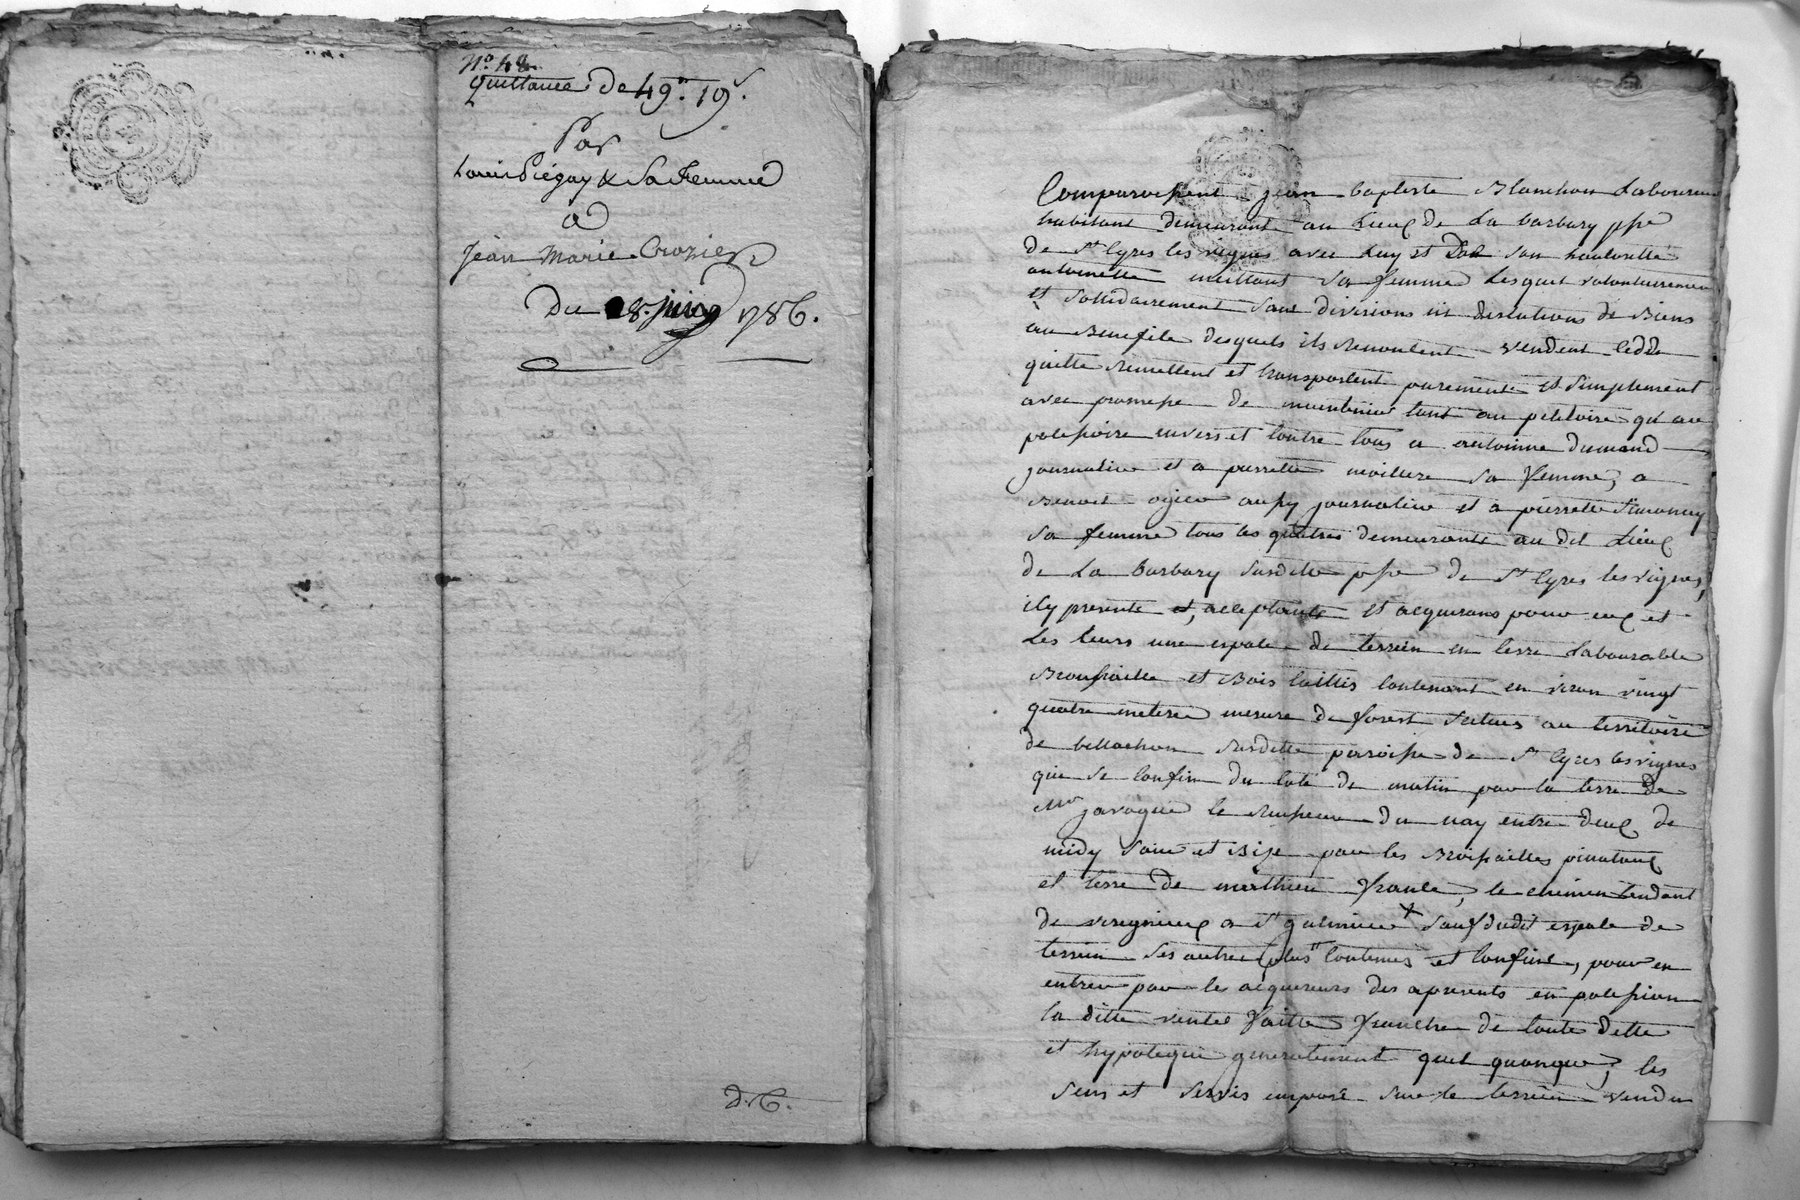 No. 48.
Quittance De 49.# 19s.
Par
Louis Piégay & Sa Femme
a
Jean Marie Crozier
Du 8. juin 1786.
D.C.
Comparoissent jean baptiste Blanchon Laboureur
habitant demeurant au Lieux de La barbary psse
De St Cyres les vignes avec Luy et De son hautorité
antoinette meittont sa femme Lesquel volontairement
Et solidairement sans divisions ni discutions de Biens
au Benefice desquels ils Renoncent vendent cedde
quitte Remettent et transportent purement et simplement
avec promesse de maintenir tant au petitoire qu'au
possessoire envers et contre tous a antoinne Dumond
journalier et a pierrette moillere sa femme, a
Benoist ogier aussy journalier et a pierrette Simoney
sa femme tous les quatres demeurants au dit Lieux
de La barbary susditte psse de St Cyres les vignes,
icy presents et, acceptants et acquerans pour eux et
Les leurs une espace de terrein en terre Labourable
Broussaille et Bois taillis contenant en viron vingt
quatre meterée mesure de forest scitués au territoire
de bellachon susditte parroisse de St Cyres les vignes
qui se confin du coté de matin par la terre de
Mr javogue le ruisseau du nay entre deux de
midy soire et Bize par les Broissailles pinataux
et terre de matthieu france, le chemin tendant
de viregnieux a St galmier + sauf dudit espace de
terrein ses autres plus contenus et confins, pour en
entrer par les acquereurs des aprésents en possession
la ditte vente faitte franche de toute dette
et hypoteque generalement quel quonque, les
sens et servis imposé sur le terrein vendu